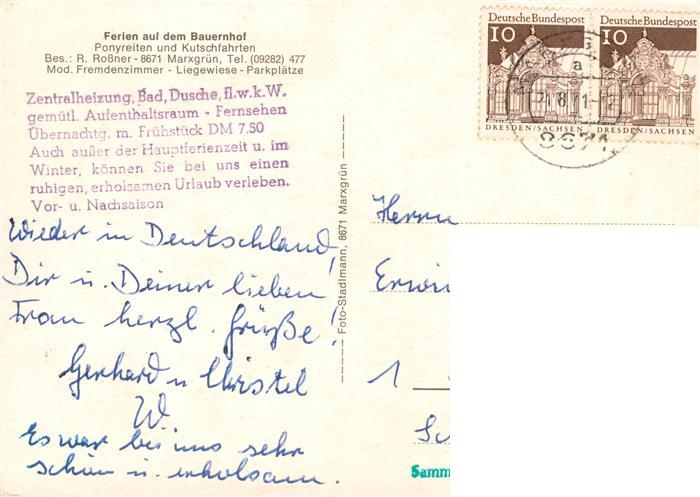 Ferien auf dem Bauernhof
Ponyreiten und Kutschfahrten
Bes.: R. Roßner - 8671 Marxgrün, Tel. (09282) 477
Mod. Fremdenzimmer - Liegewiese - Parkplätze
Zentralheizung, Bad, Dusche, fl.w.k.W.
gemütl. Aufenthaltsraum - Fernsehen
Übernachtg. m. Frühstück DM 7.50
Auch außer der Hauptferienzeit u. im
Winter, können Sie bei uns einen
ruhigen, erholsamen Urlaub verleben.
Vor- u. Nachsaison
Wieder in Deutschland!
Dir u. Deiner lieben
Frau herzl. Grüße!
Gerhard u Christel
W
Es war bei uns sehr
schön u. erholsam.
Foto-Stadlmann, 8671 Marxgrün
Deutsche Bundespost
10
DRESDEN/SACHSEN
Deutsche Bundespost
10
DRESDEN/SACHSEN
a
21.8.71
8671
Herrn
Erwi
1
Sc
Samm